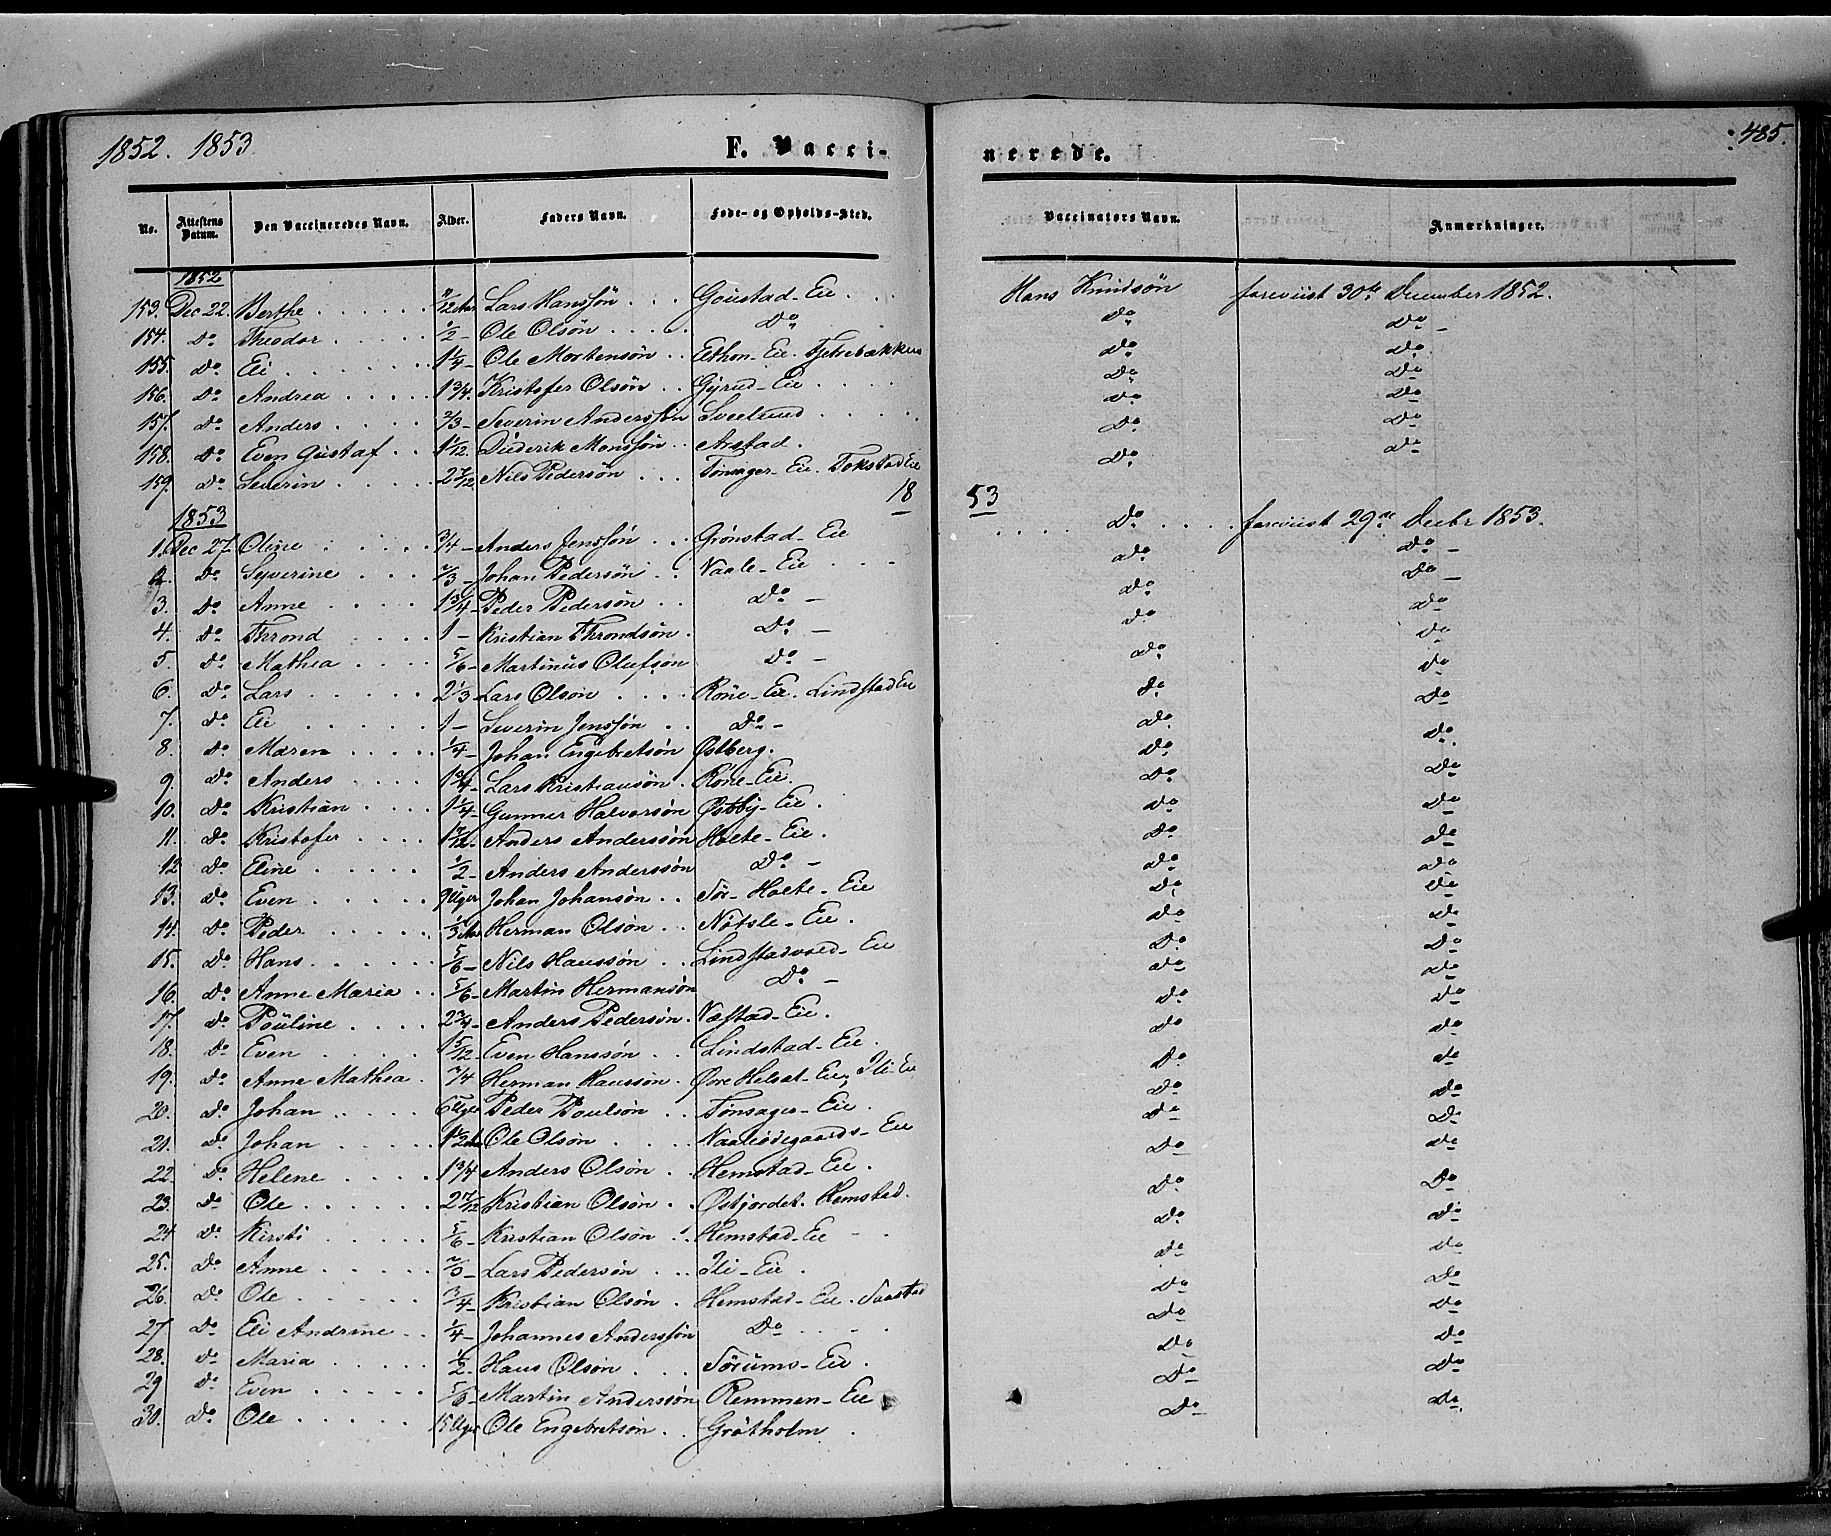 1852. 1853 F. Vacci- nerede. 485.
No. Attestens Datum. Den Vaccineredes Navn. Alder. Faders Navn. Føde- og Opholds-Sted. Vaccinators Navn. Anmærkninger.
1852
153. Dec 22. Berthe Lars Hanssøn Goustad-Eie Hans Knudsøn foreviist 30te December 1852.
154. Do Theodor 1/2 - Ole Olsøn Do Do Do -
155. Do Eli 1 1/4 - Ole Mortensøn Eie. Do Do
156. Do Andrea 1 3/4. Kristofer Olsøn Gjrud-Eie Do Do
157. Do Anders 2/3 - Severin Anderssøn Sveelund Do Do
158. Do Even Gustaf 1 1/12. Diderik Monssøn Arstad. Do Do
159. Do Severin 2 7/12 Nils Pedersøn Tønsager-Eie. Tokstad Eie Do Do
1853 18 53
1. Dec 27. Oline 3/4 - Anders Jenssøn Grønstad-Eie Do foreviist 29de Decbr 1853.
2. Do Syverine 2/3 - Johan Pedersøn Naale-Eie do Do -
3. Do Anne 1 3/4 - Peder Pedersøn Do - Do Do -
4. Do Thrond 1 - Kristian Throndsøn. Do - do Do
5. Do Mathea 5/6 - Martinus Olufsøn Do - Do do
6. Do Lars 2 1/3 Lars Olsøn Røne-Eie. Lindstad Eie do do
7. Do Eli 1 - Severin Jenssøn Do - do. Do
8. Do Maren 1/4 - Johan Engebretsøn Østberg. Do do.
9. Do Anders Lars Kristiansøn. Røne-Eie. Do Do
10. Do Kristian 1 1/4 Gunner Halvorsøn Østby-Eie. Do Do
11. Do Kristofer Anders Anderssøn Holte-Eie. Do do
12 Do Eline 1/2 - Anders Anderssøn Do - Do do
13. Do Even 9 Uger Johan Johansøn Sør-Holte-Eie Do, do
14. Do Peder 1/3 Herman Olsøn Nøtsle-Eie. Do do
15. Do Hans 5/6 - Nils Hanssøn Eie Do Do
16. Do Anne Maria 5/6 - Martin Hermansøn Do - Do do
17. Do Pouline 2 3/4 - Anders Pedersøn. Næstad-Eie. Do do
18. Do Even 1 5/12 Even Hanssøn Lindstad-Eie. Do do
19. Do Anne Mathea. Herman Hanssøn. Eie, Ili-Eie Do. do
20. Do Johan 6 Uger Peder Poulsøn Tønsager-Eie. Do do
21. Do Johan Ole Olsøn Naaleødegaards-Eie Do Do
22. Do Helene 1 3/4 Anders Olsøn Hemstad-Eie. Do do
23. Do Ole 2 7/12 Kristian Olsøn Østjordet. Hemstad. Do Do
24 Do Kirsti 5/6 - Kristian Olsøn Hemstad-Eie Do do
25. Do Anne Lars Pedersøn Ili-Eie. Do do
26. Do Ole 3/4 - Kristian Olsøn Hemstad-Eie. Do Do
27 Do Eli Andrine 1/4 - Johannes Anderssøn Do Do do
28. Do Maria 1/2. Hans Olsøn Sørums-Eie. Do Do
29 Do Even 5/6 - Martin Anderssøn Remmen-Eie Do Do
30. Do Ole 15 Uger Ole Engebretsøn Grøtholm Do Do.